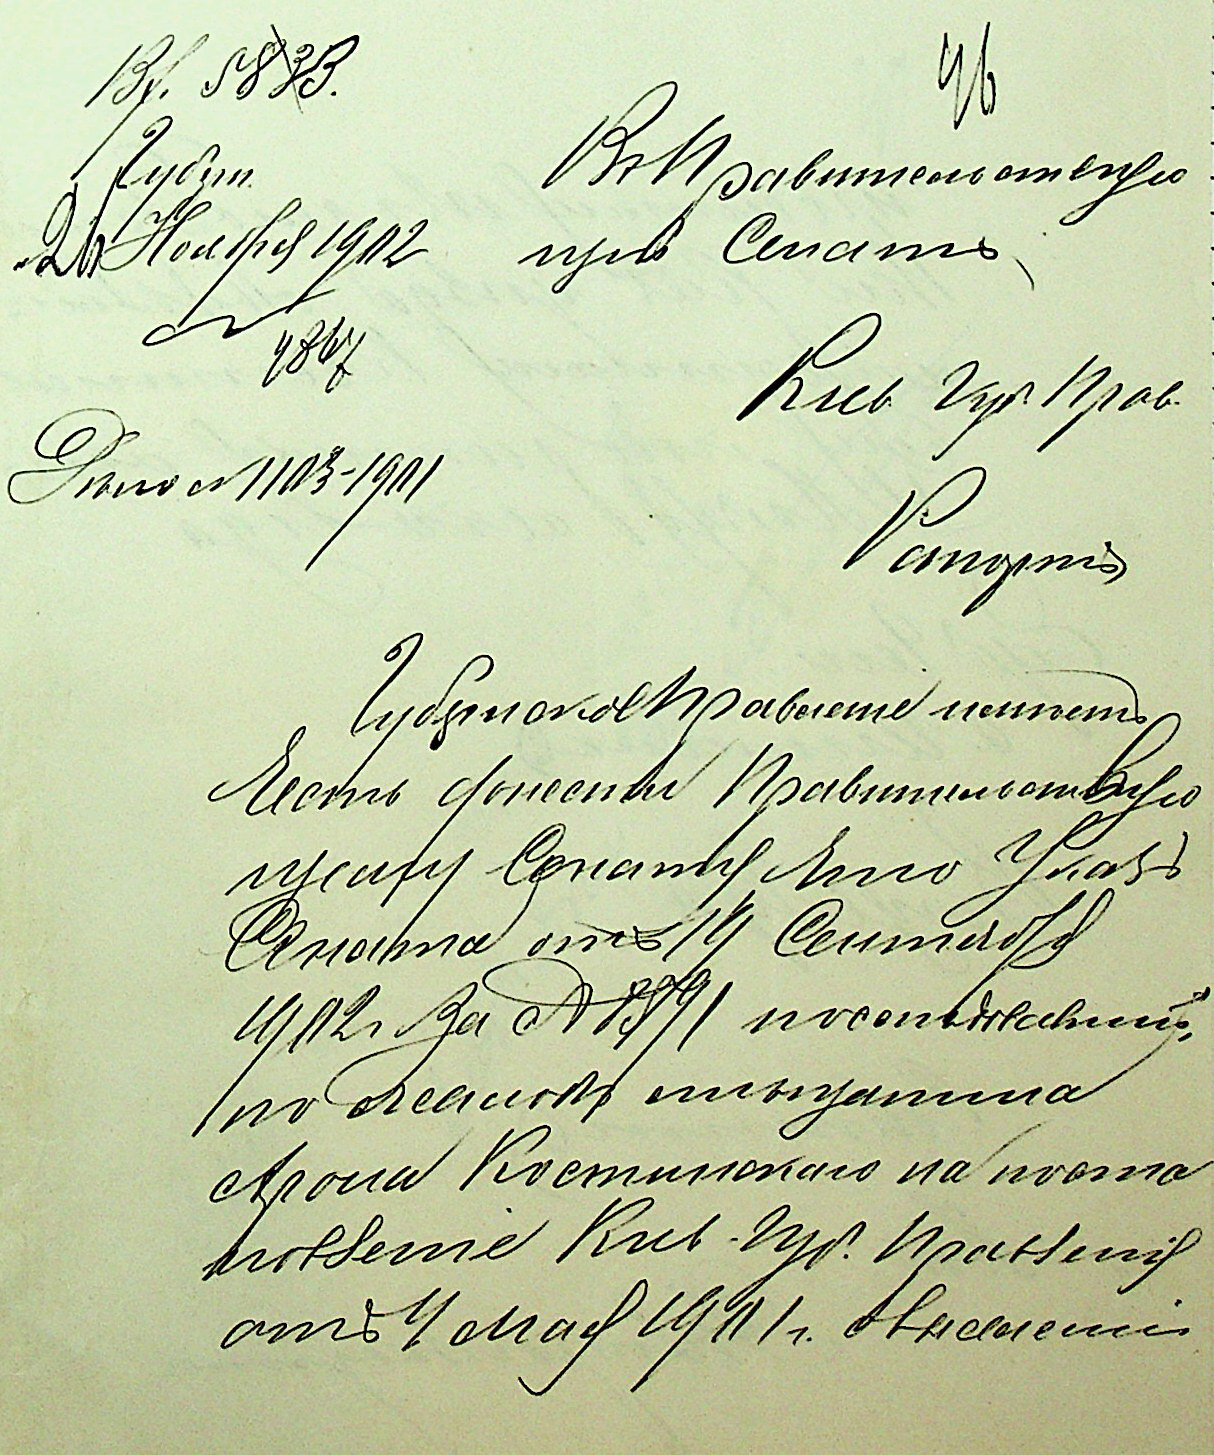 46
Вх. 5833.
Губерн.
26 Ноября 1902
4867
Дѣло № 1103-1901
Въ Правительствую
щій Сенатъ
Кіев. Губ. Прав.
Рапортъ
Губернское Правленіе имѣетъ
честь донести Правительствую
щему Сенату что Указъ
Сената отъ 14 Сентября
1902 г. за № 8891 послѣдовавшій
по жалобѣ мѣщанина
Арона Костинскаго на поста
новленіе Кіев. Губ. Правленія
отъ 4 мая 1901 г. о выселеніи